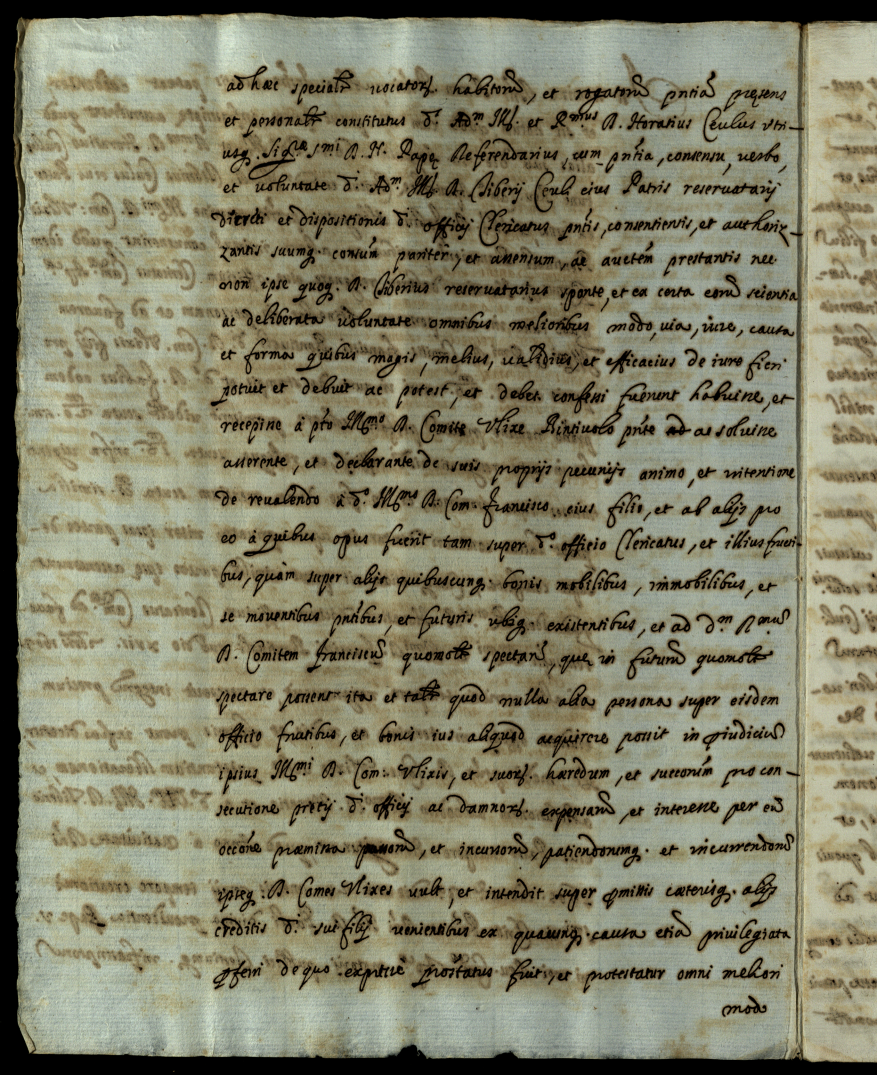 ad hæc specialr vocatorȝ. habitorū, et rogatorū pntiā præsens
et personalr constitutus d.s Adm Ill. et Rmus D. Horatius Ceulus vtri-
usq. sigræ Smi D. N. Papæ Referendarius, cum pntia, consensu, verbo,
et voluntate d.i Adm Ill. D. Tiberij Ceuli eius Patris reservatarij
et dispositionis d.i officij Clericatus pntis, consentientis, et authoriz-
zantis suumq. consm pariter, et assensum, ac auctem prestantis nec
non ipse quoq. D. Tiberius reservatarius sponte, et ex certa eorū scientia
ac deliberata voluntate omnibus melioribus modo, via, iure, causa
et forma quibus magis, melius, validius, et efficacius de iure fieri
potuit et debuit ac potest, et debet confessi fuerunt habuisse, et
recepisse à pto Illmo D. Comite Vlixe Bintivolo pnte ac soluisse
asserente, et declarante de suis proprijs pecunijs animo, et intentione
de revalendo à d.o Illmo D. Com. Francisco eius filio, et ab alijs pro
eo à quibus opus fuerit tam super d.o officio Clericatus, et illius fructi-
bus, quàm super alijs quibuscunq. bonis mobilibus, immobilibus, et
se moventibus pntibus, et futuris ubiq. existentibus, et ad dm Rmū
D. Comitem Franciscū quomolt spectan, que in futurū quomolt
spectare possent ita et talr quod nulla alia persona super eisdem
officio frutibus, et bonis ius aliquod acquirere possit in piudiciū
ipsius Illmi D. Com. Vlixis, et suorȝ. hæredum, et succorum pro con-
secutione pretij d.i officij ac damnorȝ. expensarū, et interesse per eū
occone præmissa passorū, et incursorū, patiendorumq. et incurrendorū
ipseq. D. Comes Vlixes vult, et intendit super pmissis cæterisq. alijs
creditis d.i sui filij venientibus ex quacunq. causa etiā privilegiata
pferri de quo expresse protestatus fuit, et protestatur omni meliori
modo